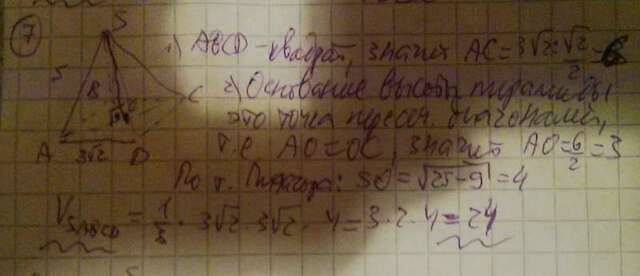 7
S
5
B
C
A
3√2
D
1) ABCD - квадрат, значит AC = 3√2 : √2/2 = 6
2) Основание высоты пирамиды
это точка пересеч. диагоналей,
т.е AO = OC, значит AO = 6/2 = 3
По т. Пифагора: SO = √25-9 = 4
V SABCD = 1/3 · 3√2 · 3√2 · 4 = 3 · 2 · 4 = 24